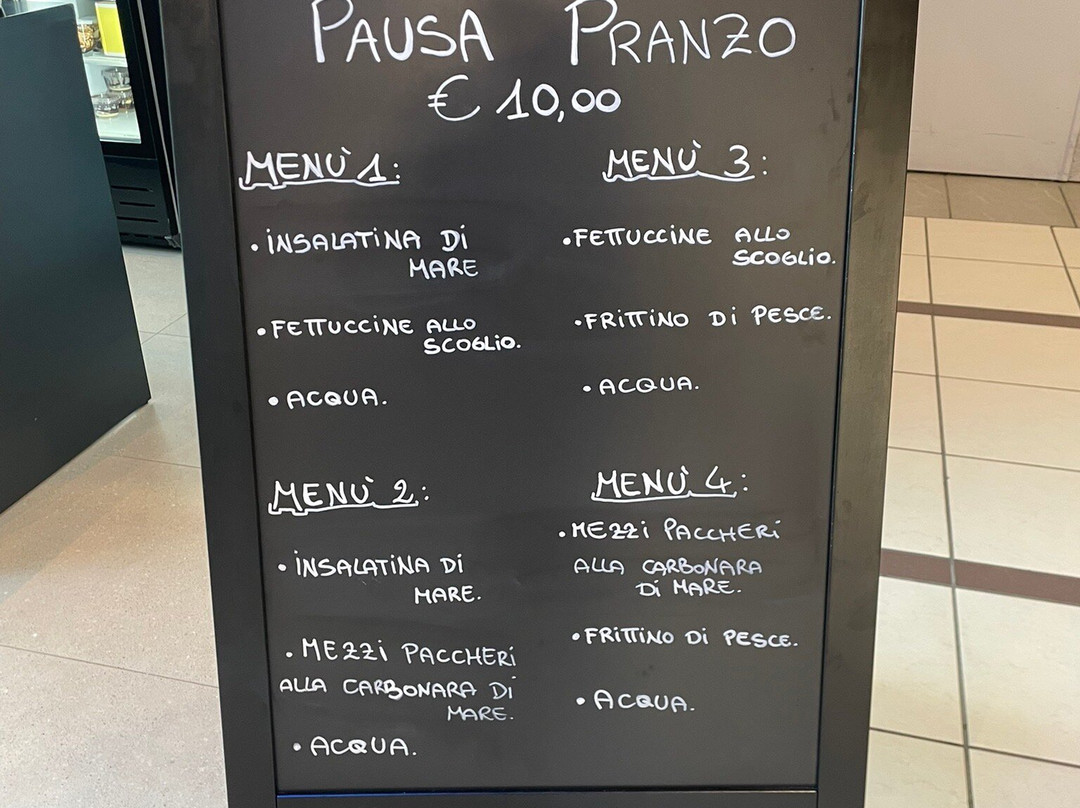 PAUSA PRANZO
€ 10,00
MENÙ 1:
• INSALATINA DI
MARE
• FETTUCCINE ALLO
SCOGLIO.
• ACQUA.
MENÙ 2:
• INSALATINA DI
MARE.
• MEZZI PACCHERI
ALLA CARBONARA DI
MARE.
• ACQUA.
MENÙ 3:
• FETTUCCINE ALLO
SCOGLIO.
• FRITTINO DI PESCE.
• ACQUA.
MENÙ 4:
• MEZZI PACCHERI
ALLA CARBONARA
DI MARE.
• FRITTINO DI PESCE.
• ACQUA.